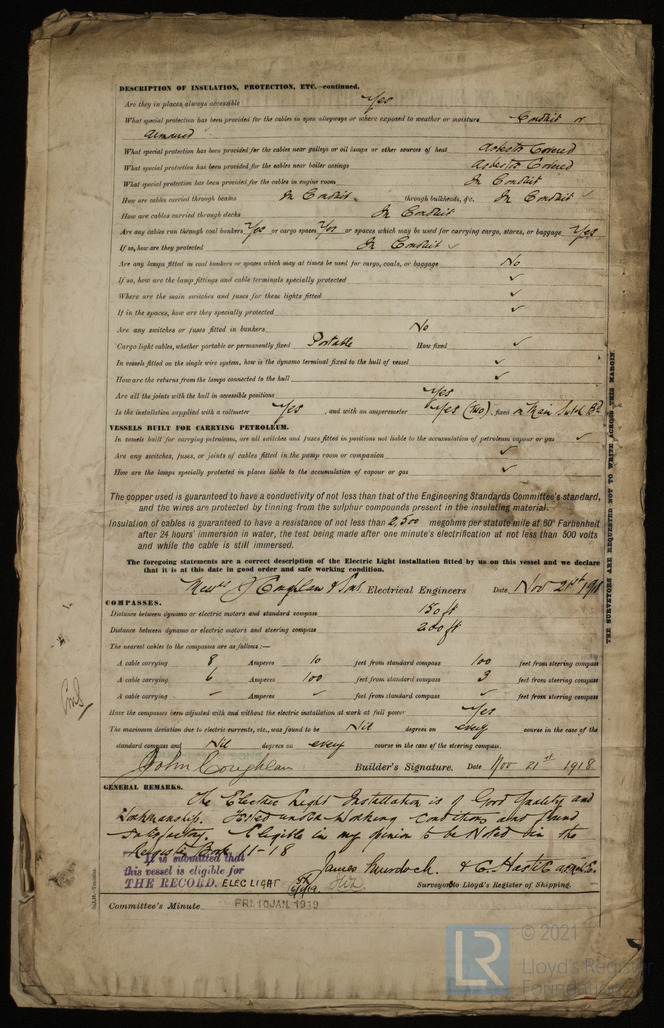 DESCRIPTION OF INSULATION, PROTECTION, ETC.—continued.
Are they in places always accessible Yes
What special protection has been provided for the cables in open alleyways or where exposed to weather or moisture Conduit or
armored
What special protection has been provided for the cables near galleys or oil lamps or other sources of heat Asbestos Covered
What special protection has been provided for the cables near boiler casings Asbestos Covered
What special protection has been provided for the cables in engine room In Conduit
How are cables carried through beams In Conduit. through bulkheads, &c. In Conduit ✓
How are cables carried through decks In Conduit
Are any cables run through coal bunkers Yes or cargo spaces Yes or spaces which may be used for carrying cargo, stores, or baggage Yes
If so, how are they protected In Conduit ✓
Are any lamps fitted in coal bunkers or spaces which may at times be used for cargo, coals, or baggage No
If so, how are the lamp fittings and cable terminals specially protected ✓
Where are the main switches and fuses for these lights fitted ✓
If in the spaces, how are they specially protected ✓
Are any switches or fuses fitted in bunkers No
Cargo light cables, whether portable or permanently fixed Portable How fixed ✓
In vessels fitted on the single wire system, how is the dynamo terminal fixed to the hull of vessel ✓
How are the returns from the lamps connected to the hull ✓
Are all the joints with the hull in accessible positions Yes
Is the installation supplied with a voltmeter Yes, and with an amperemeter Yes (Two), fixed on Main Swbd Bd
VESSELS BUILT FOR CARRYING PETROLEUM.
In vessels built for carrying petroleum, are all switches and fuses fitted in positions not liable to the accumulation of petroleum vapour or gas ✓
Are any switches, fuses, or joints of cables fitted in the pump room or companion ✓
How are the lamps specially protected in places liable to the accumulation of vapour or gas ✓
The copper used is guaranteed to have a conductivity of not less than that of the Engineering Standards Committee's standard,
and the wires are protected by tinning from the sulphur compounds present in the insulating material.
Insulation of cables is guaranteed to have a resistance of not less than 2,500 megohms per statute mile at 60° Farhenheit
after 24 hours' immersion in water, the test being made after one minute's electrification at not less than 500 volts
and while the cable is still immersed.
The foregoing statements are a correct description of the Electric Light installation fitted by us on this vessel and we declare
that it is at this date in good order and safe working condition.
Messrs J Coughlan & Sons Electrical Engineers Date Nov 21st 1918
COMPASSES.
Distance between dynamo or electric motors and standard compass 150 ft
Distance between dynamo or electric motors and steering compass 200 ft
The nearest cables to the compasses are as follows:—
A cable carrying 8 Amperes 10 feet from standard compass 100 feet from steering compass
A cable carrying 6 Amperes 100 feet from standard compass 3 feet from steering compass
A cable carrying — Amperes ✓ feet from standard compass ✓ feet from steering compass
Have the compasses been adjusted with and without the electric installation at work at full power Yes
The maximum deviation due to electric currents, etc., was found to be Nil degrees on every course in the case of the
standard compass and Nil degrees on every course in the case of the steering compass.
John Coughlan Builder's Signature. Date Nov 21st 1918
GENERAL REMARKS.
The Electric Light Installation is of Good Quality and
Workmanship. Tested under Working Conditions and found
Satisfactory. Eligible in my opinion to be Noted in the
Register Book 11-18
It is submitted that
this vessel is eligible for
THE RECORD. ELEC LIGHT
James Murdoch. & C.
Surveyors to Lloyd's Register of Shipping.
Committee's Minute FRI. 10 JAN 1919
THE SURVEYORS ARE REQUESTED NOT TO WRITE ACROSS THIS MARGIN.
LR
© 2021
Lloyd's Register
Foundation